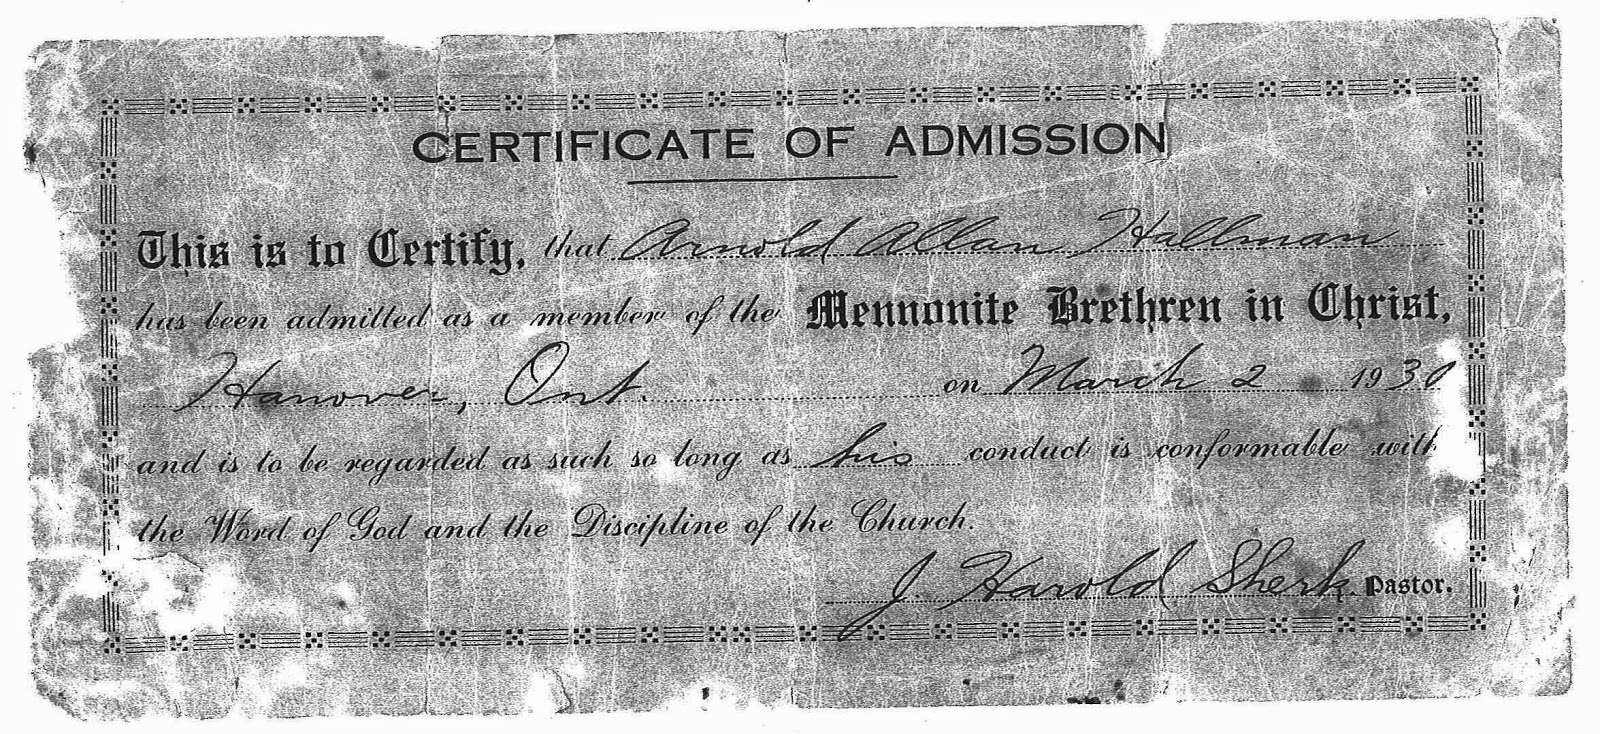 CERTIFICATE OF ADMISSION
This is to Certify, that Arnold Allan Hallman
has been admitted as a member of the Mennonite Brethren in Christ,
Hanover, Ont. on March 2 1930
and is to be regarded as such so long as his conduct is conformable with
the Word of God and the Discipline of the Church.
J. Harold Sherk. Pastor.